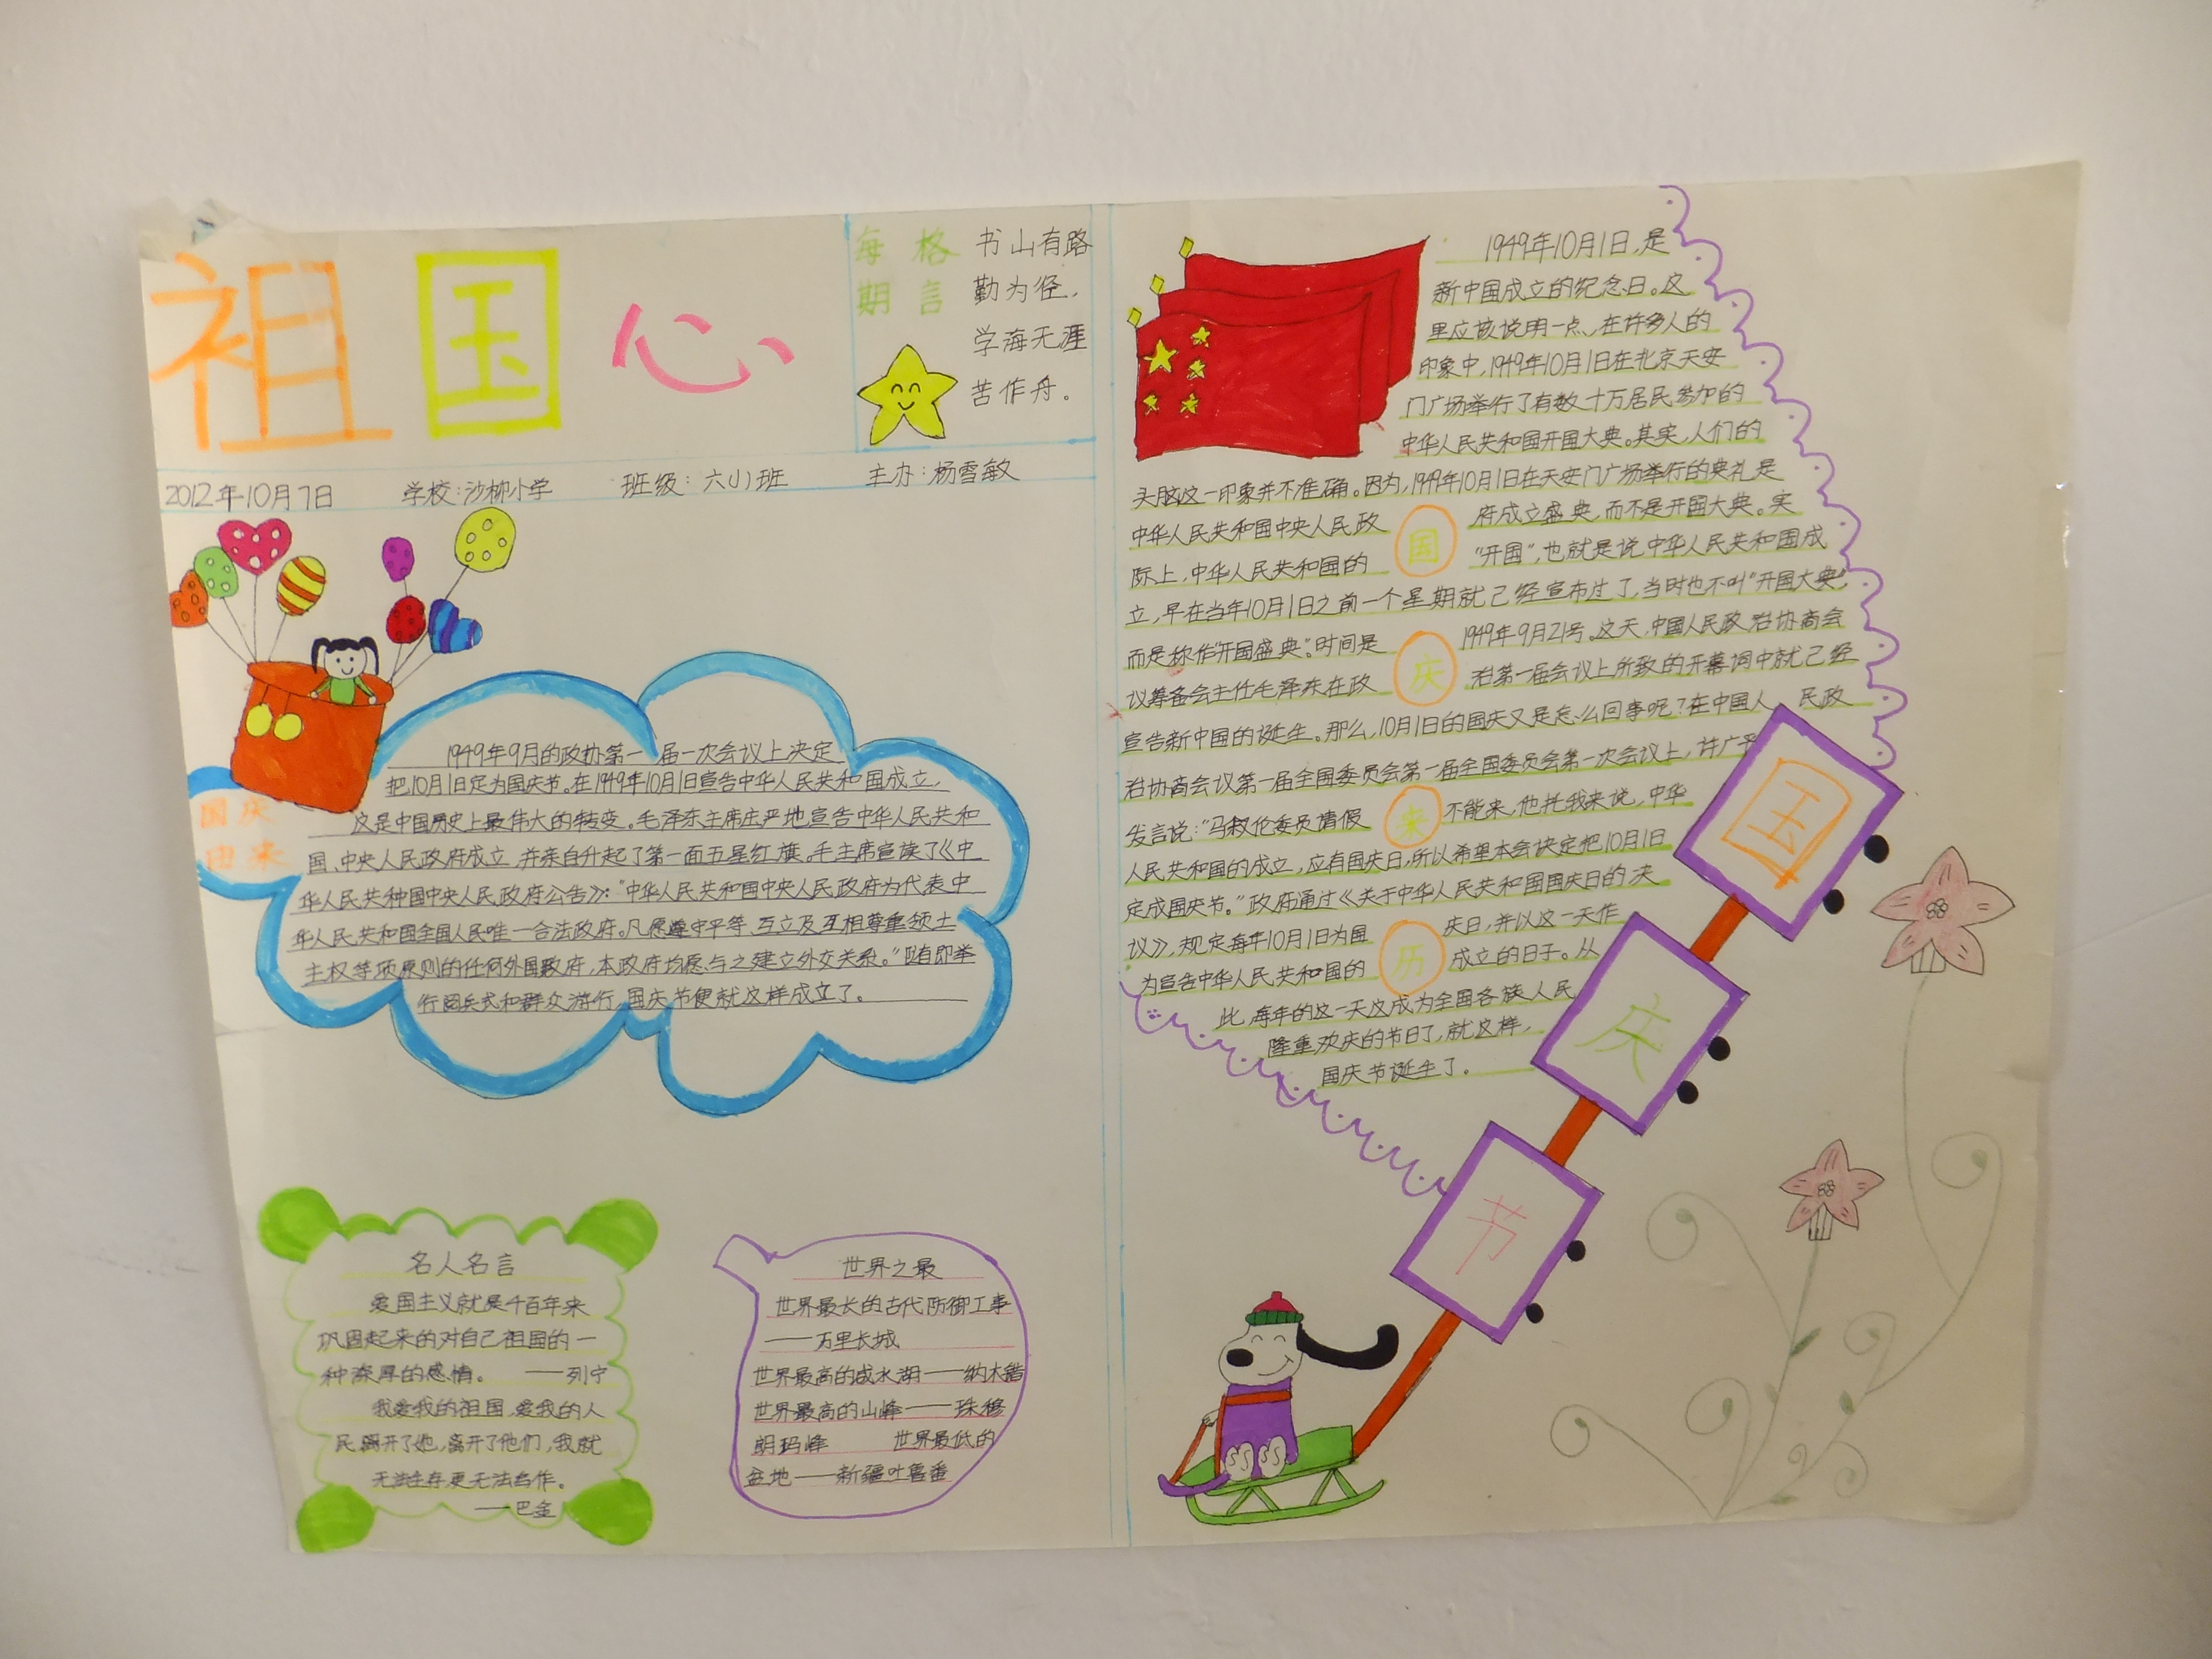 祖国心
每期
格言
书山有路
勤为径，
学海无涯
苦作舟。
2012年10月7日 学校：沙柳小学 班级：六(1)班 主办：杨雪敏
国庆
由来
1949年9月的政协第一届一次会议上决定
把10月1日定为国庆节。在1949年10月1日宣告中华人民共和国成立，
这是中国历史上最伟大的转变。毛泽东主席庄严地宣告中华人民共和
国、中央人民政府成立，并亲自升起了第一面五星红旗。毛主席宣读了《中
华人民共和国中央人民政府公告》：“中华人民共和国中央人民政府为代表中
华人民共和国全国人民唯一合法政府。凡愿遵守平等、互立及互相尊重领土
主权等项原则的任何外国政府，本政府均愿与之建立外交关系。”随即举
行阅兵式和群众游行，国庆节便就这样成立了。
名人名言
爱国主义就是千百年来
巩固起来的对自己祖国的一
种深厚的感情。 ——列宁
我爱我的祖国，爱我的人
民，离开了她，离开了他们，我就
无法生存，更无法写作。
——巴金
世界之最
世界最长的古代防御工事
——万里长城
世界最高的咸水湖——纳木错
世界最高的山峰——珠穆
朗玛峰 世界最低的
盆地——新疆吐鲁番
1949年10月1日，是
新中国成立的纪念日。这
里应该说明一点，在许多人的
印象中，1949年10月1日在北京天安
门广场举行了有数十万居民参加的
中华人民共和国开国大典。其实，人们的
头脑这一印象并不准确。因为，1949年10月1日在天安门广场举行的典礼是
中华人民共和国中央人民政府成立盛典，而不是开国大典。实
际上，中华人民共和国的“开国”，也就是说中华人民共和国成
立，早在当年10月1日之前一个星期就己经宣布过了，当时也不叫“开国大典”，
而是称作“开国盛典”。时间是1949年9月21号。这天，中国人民政治协商会
议筹备会主任毛泽东在政治第一届会议上所致的开幕词中就己经
宣告新中国的诞生。那么，10月1日的国庆又是怎么回事呢？在中国人民政
治协商会议第一届全国委员会第一届全国委员会第一次会议上，许广平
发言说：“马叙伦委员请假不能来，他托我来说，中华
人民共和国的成立，应有国庆日，所以希望本会决定把10月1日
定成国庆节。”政府通过《关于中华人民共和国国庆日的决
议》，规定每年10月1日为国庆日，并以这一天作
为宣告中华人民共和国的成立的日子。从
此，每年的这一天这成为全国各族人民
隆重欢庆的节日了，就这样，
国庆节诞生了。
国
庆
来
历
国
庆
节